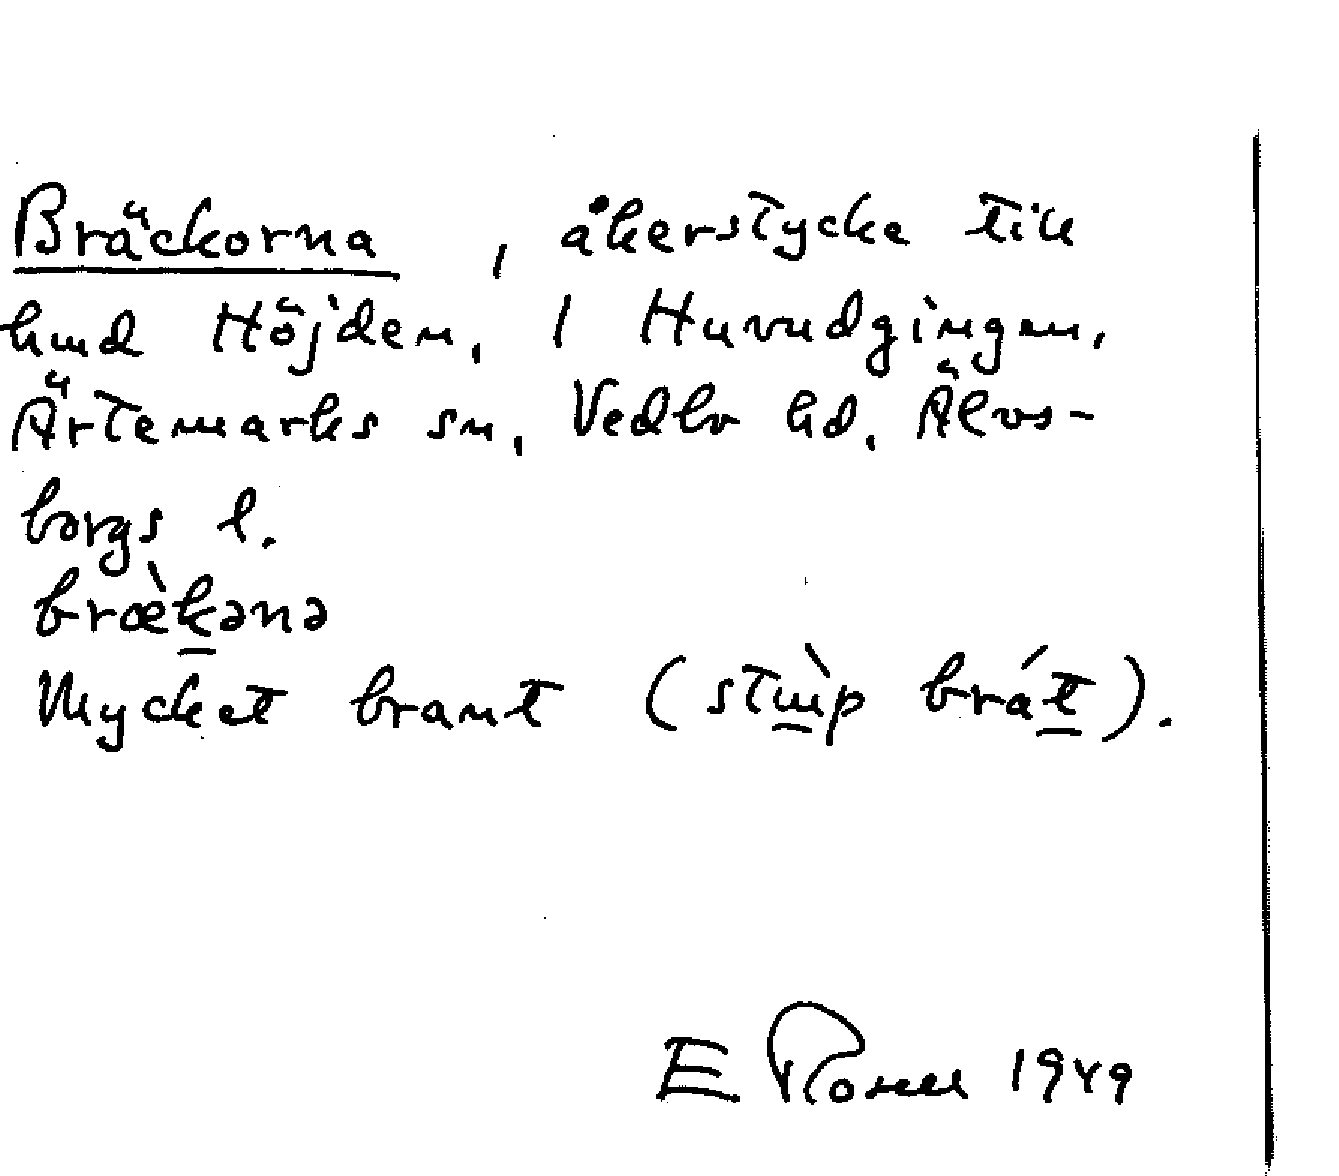 Bräckorna, åkerstycke till
lmd Höjden, 1 Huvudgingen,
Ärtemarks sn, Vedbo hd. Älvs-
borgs l.
bræ̀k̲ənə
Mycket brant (stɯ̲̀p brát̲).
E 1949